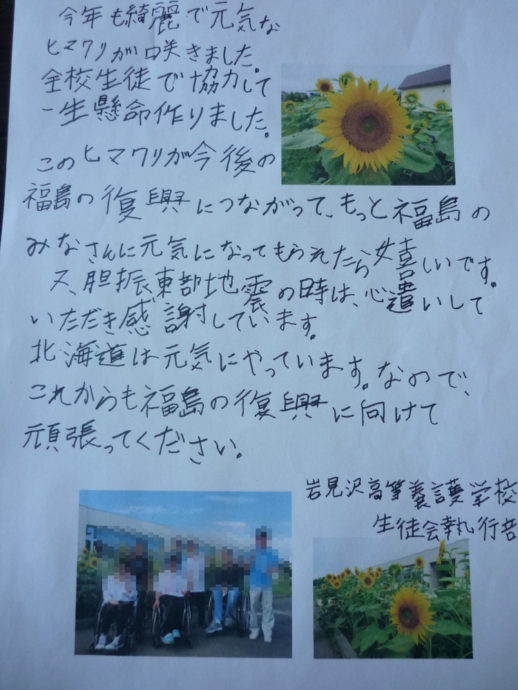 今年も綺麗で元気な
ヒマワリが咲きました。
全校生徒で協力して
一生懸命作りました。
このヒマワリが今後の
福島の復興につながって、もっと福島の
みなさんに元気になってもられたら嬉しいです。
又、胆振東部地震の時は、心遣いして
いただき感謝しています。
北海道は元気にやっています。なので、
これからも福島の復興に向けて
頑張ってください。
岩見沢高等養護学校
生徒会執行部